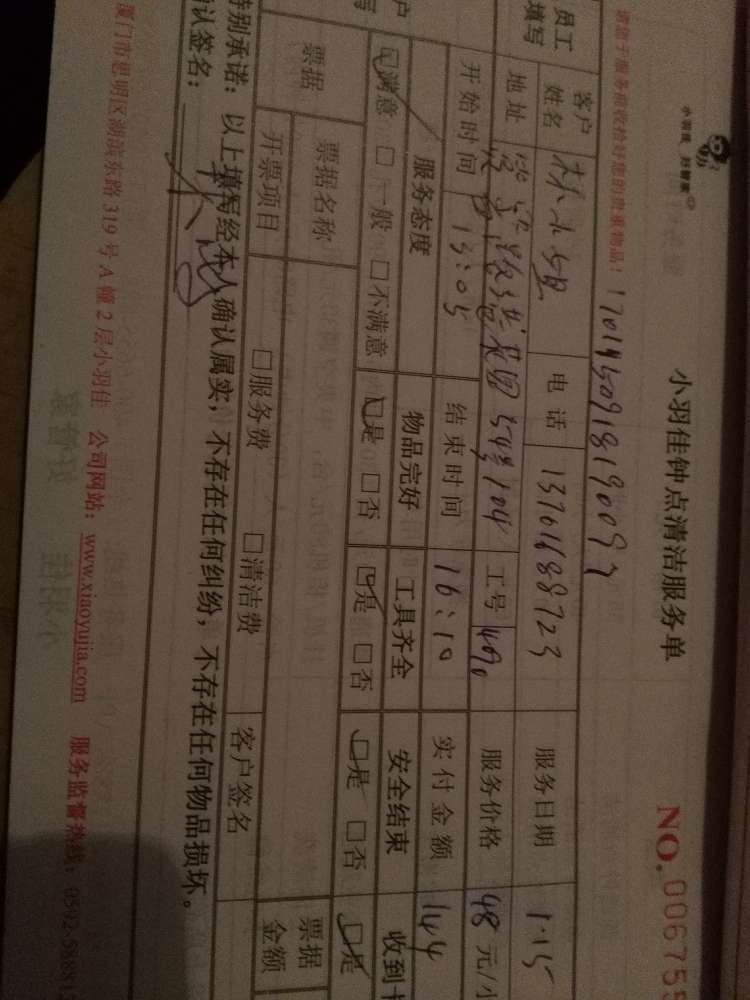 小羽佳钟点清洁服务单
NO. 006755
请您于服务前收拾好您的贵重物品！
员工填写
客户姓名 电话 13701688723 服务日期 1.15
地址 工号 服务价格 48 元/小
开始时间 13:05 结束时间 16:10 实付金额 144
服务态度 物品完好 工具齐全 安全结束 收到
☑满意 □一般 □不满意 ☑是 □否 ☑是 □否 ☑是 □否 ☑是
票据 票据名称 客户签名 票据金额
开票项目 □服务费 □清洁费
特别承诺：以上填写经本人确认属实，不存在任何纠纷，不存在任何物品损坏。
确认签名：
厦门市思明区湖滨东路319号A幢2层小羽佳 公司网站：www.xiaoyujia.com 服务监督热线：0592-5881